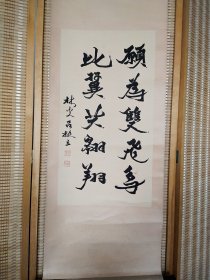 願為雙飛鳥
比翼共翱翔